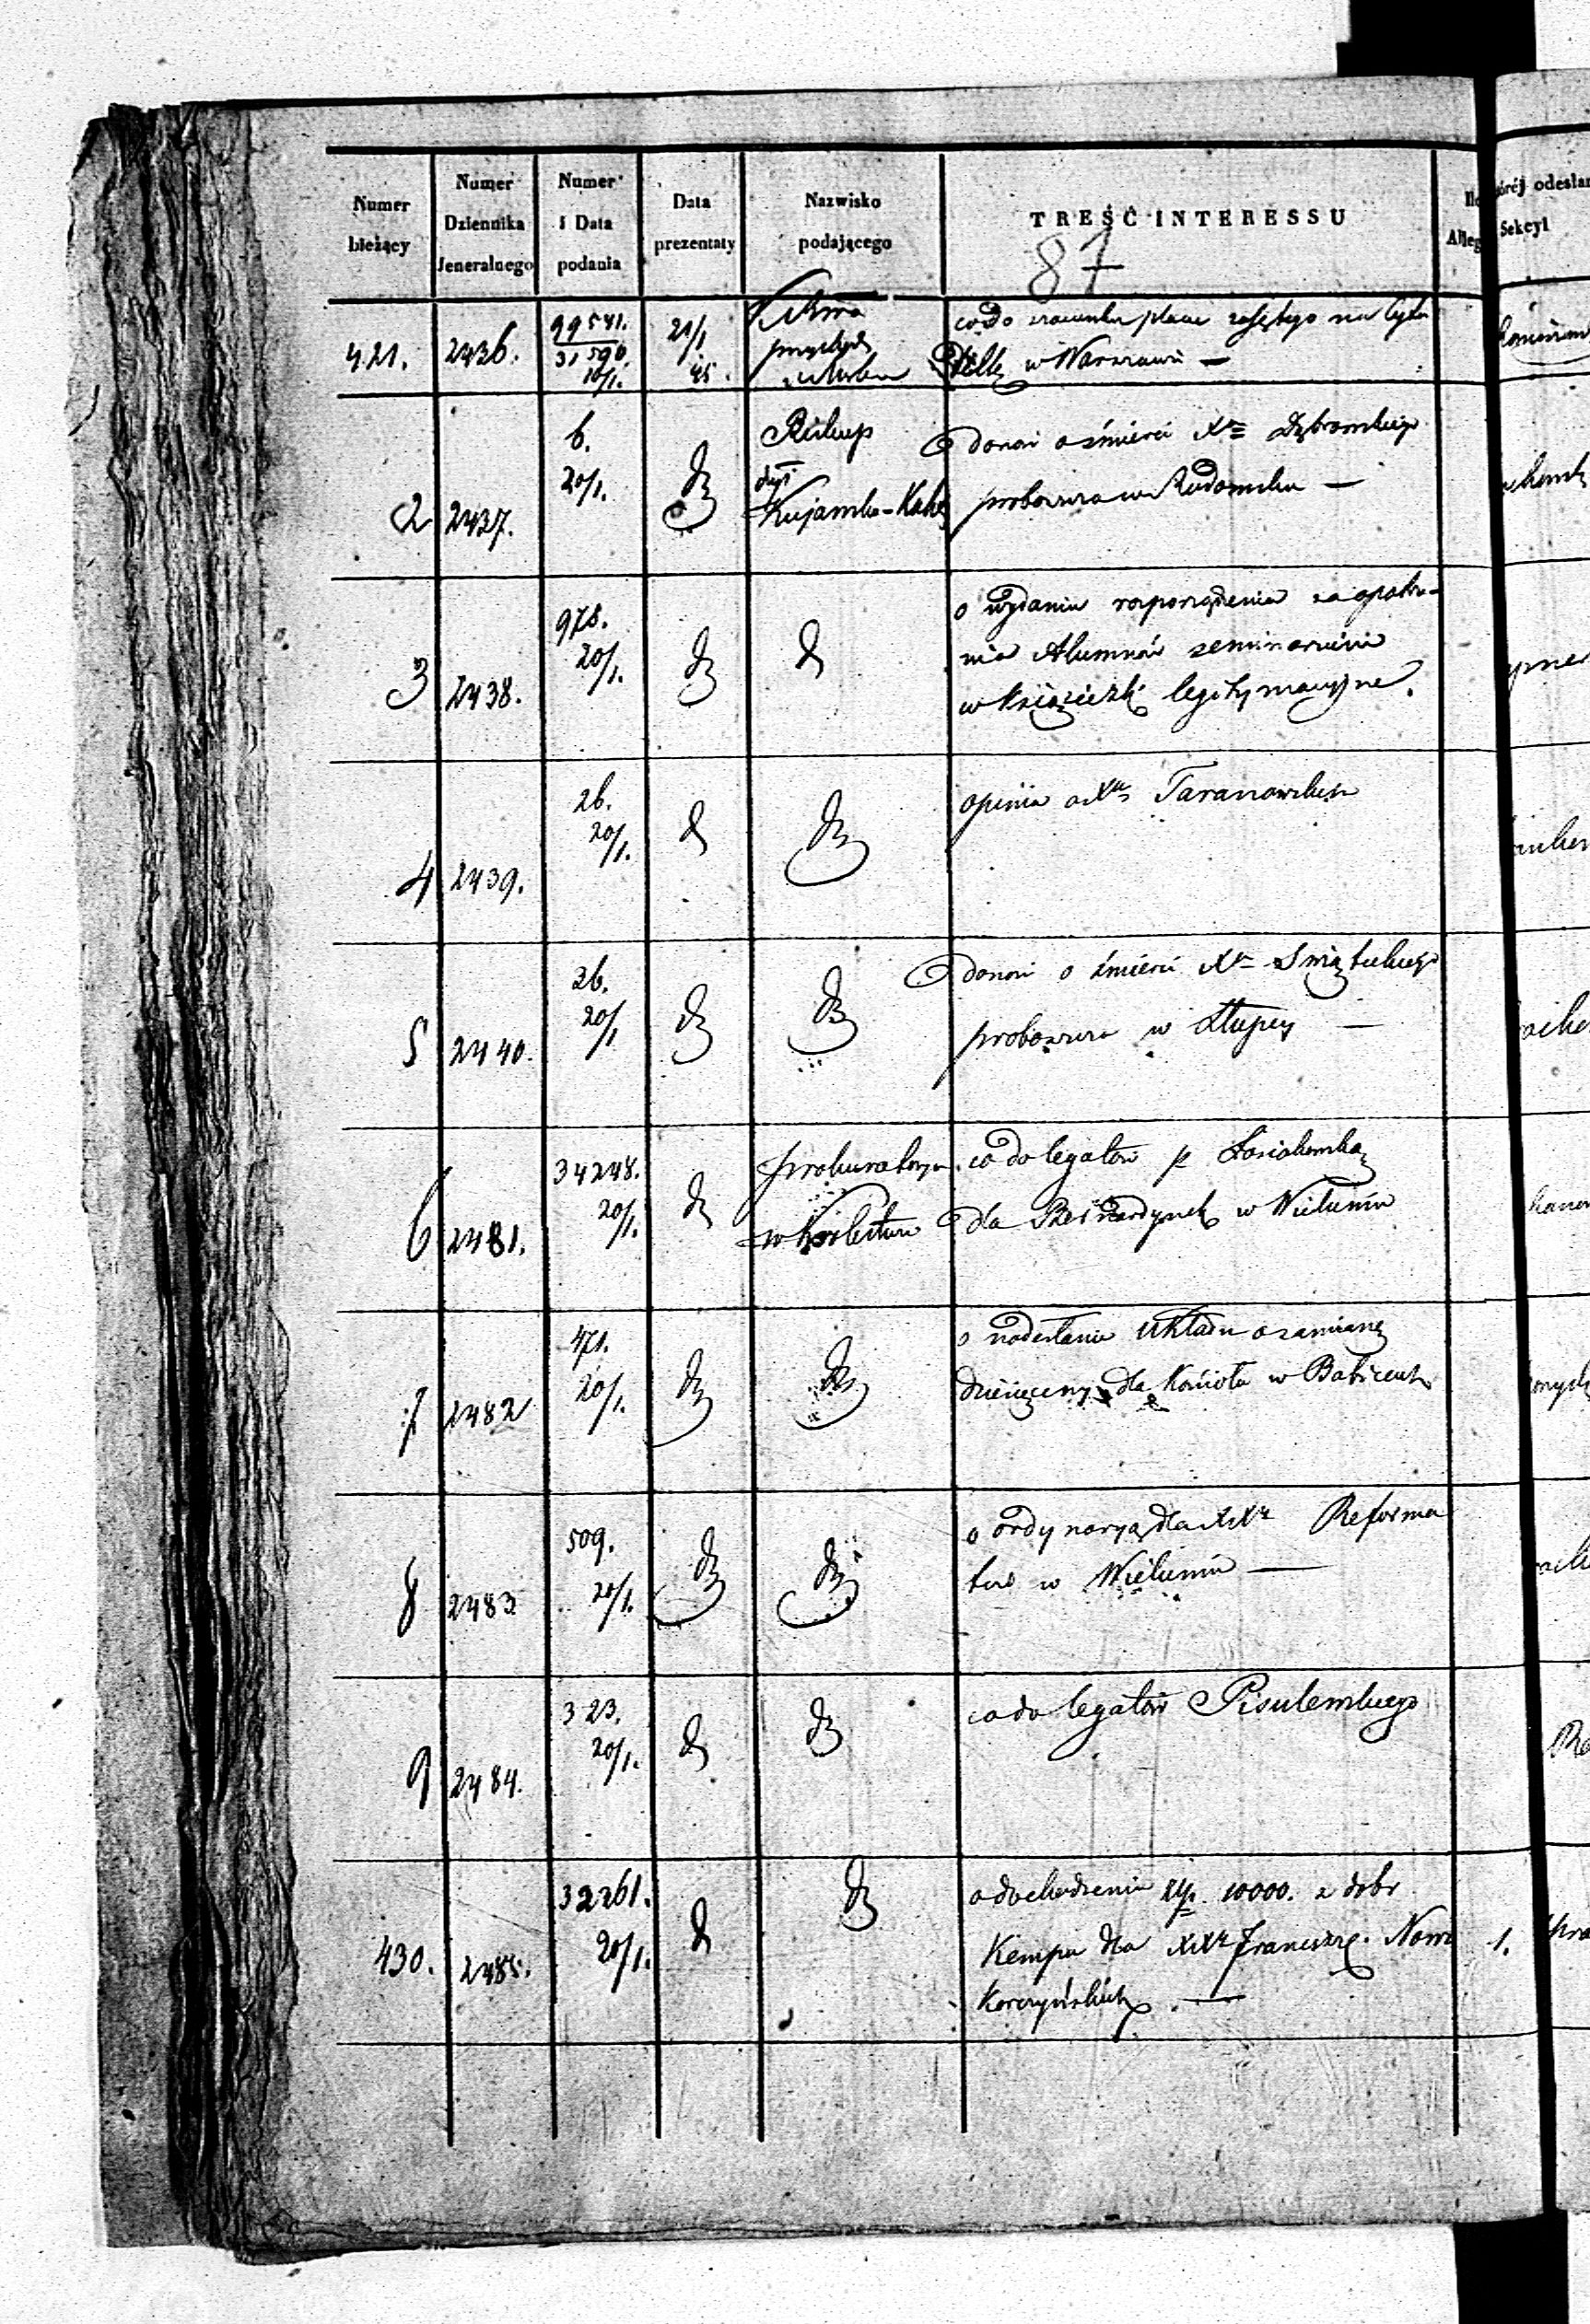 Numer bieżący
Numer Dziennika Jeneralnego
Numer i Data podania
Data prezentaty
Nazwisko podającego
TREŚĆ INTERESSU
Alleg
któréj odesłan
Sekcyi
87
421. 2436. 99541. 31590 10/1. 21/1 45.
co do szacunku placu zajętego na
w Warszawie —
2 2437. 6. 20/1. dt Biskup dyi Kujawsko-Kalis
donosi o śmierci Xa Dąbrowskiego
proboszcza w Radomsku —
3 2438. 978. 20/1. dt dt
o wydanie rozporządzenia zaopatrze-
nia Alumnów seminarium
w książeczki legitymacyjne.
4 2439. 26. 20/1. dt dt
opinia o Xdu Taranowskim
5 2440. 36. 20/1 dt dt
donosi o śmierci Xa Swiąteckiego
proboszcza w Słupcy —
6 2481. 34248. 20/1. dt Prokuratorya w Królestwie
co do legatów p
dla Bernardynek w Wieluniu
7 2482 471. 20/1. dt dt
o nadesłanie układu o zamianę
dziesięciny dla Kościoła w Babicach
8 2483 509. 20/1. dt dt
o ordynaryą dla XXży Reforma
tów w Wieluniu —
9 2484. 323. 20/1. dt dt
co do legatów Pisulewskiego
430. 2485. 32261. 20/1. dt dt
o dochodzenie złp. 10000. z dóbr
Kempa dla XXży Franciszk. Nowo
Korczyńskich. — 1.